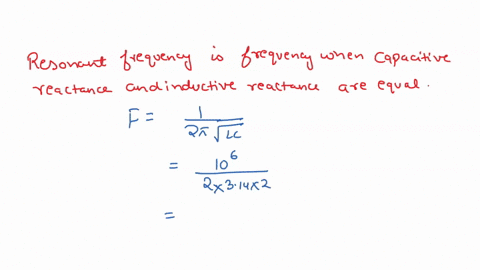 Resonant frequency is frequency when capacitive
reactance and inductive reactance are equal.
F = 1 / 2π √LC
= 10^6 / 2×3.14×2
=